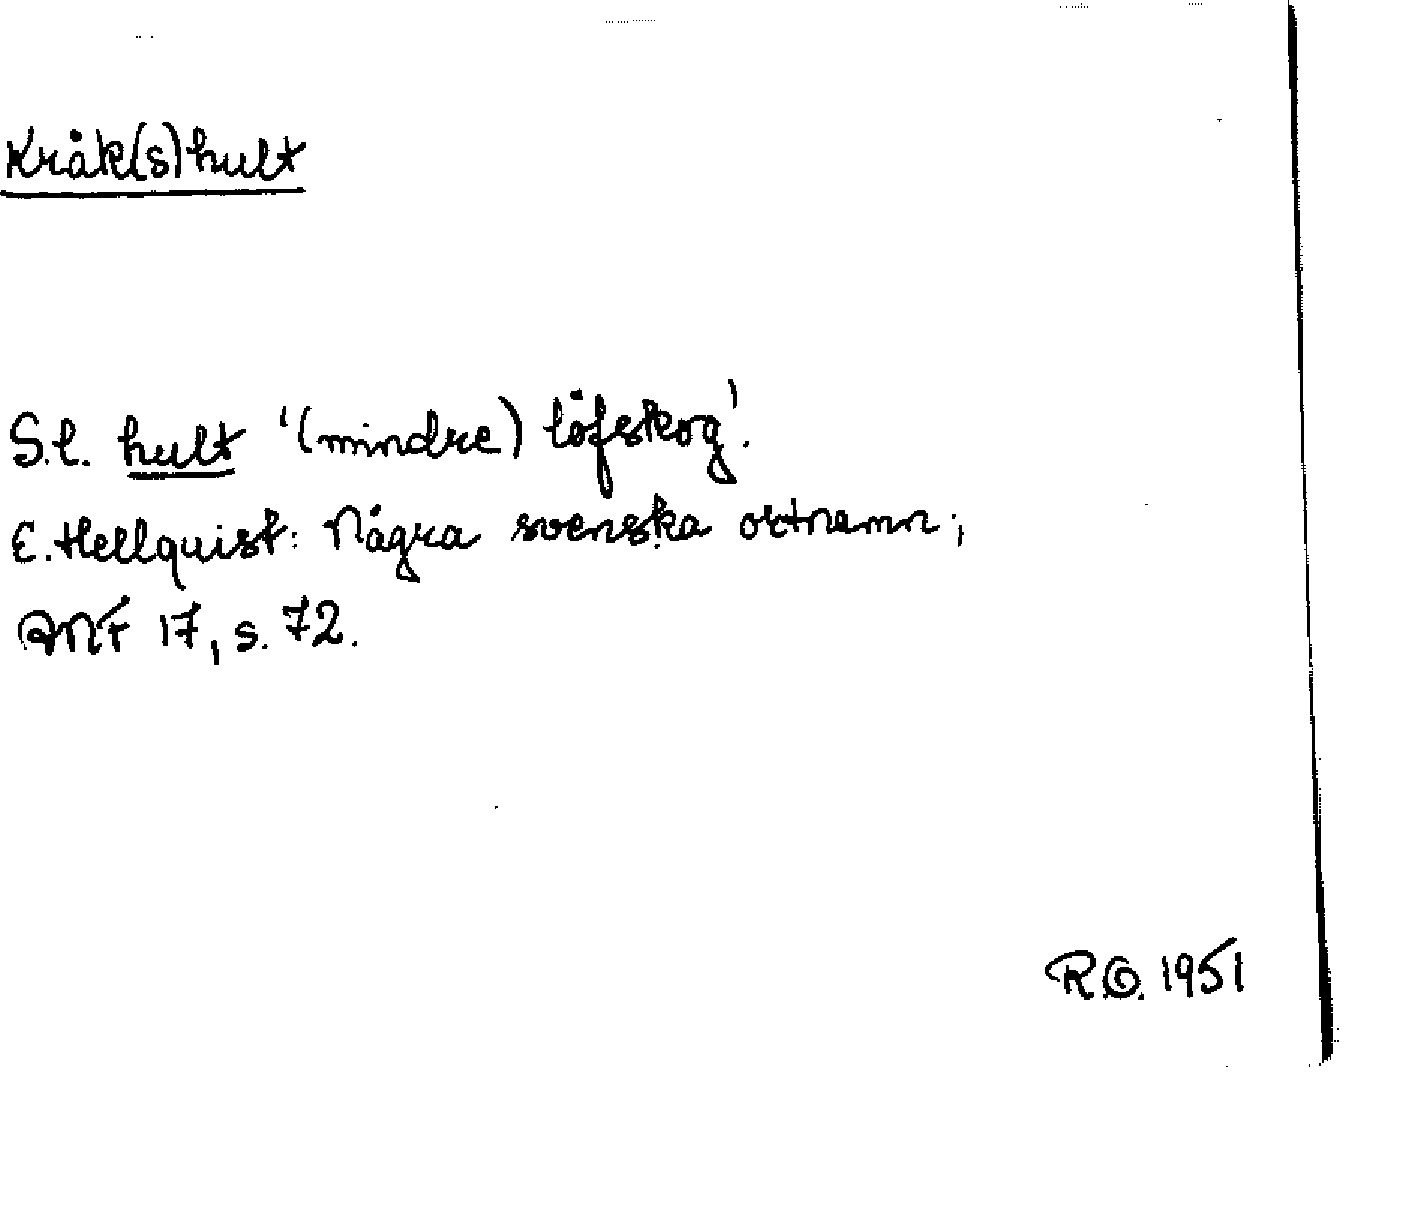 Kråk(s)hult
S.l. hult '(mindre) löfskog'.
E. Hellquist: Några svenska ortnamn;
ANF 17, s. 72.
R.G. 1951